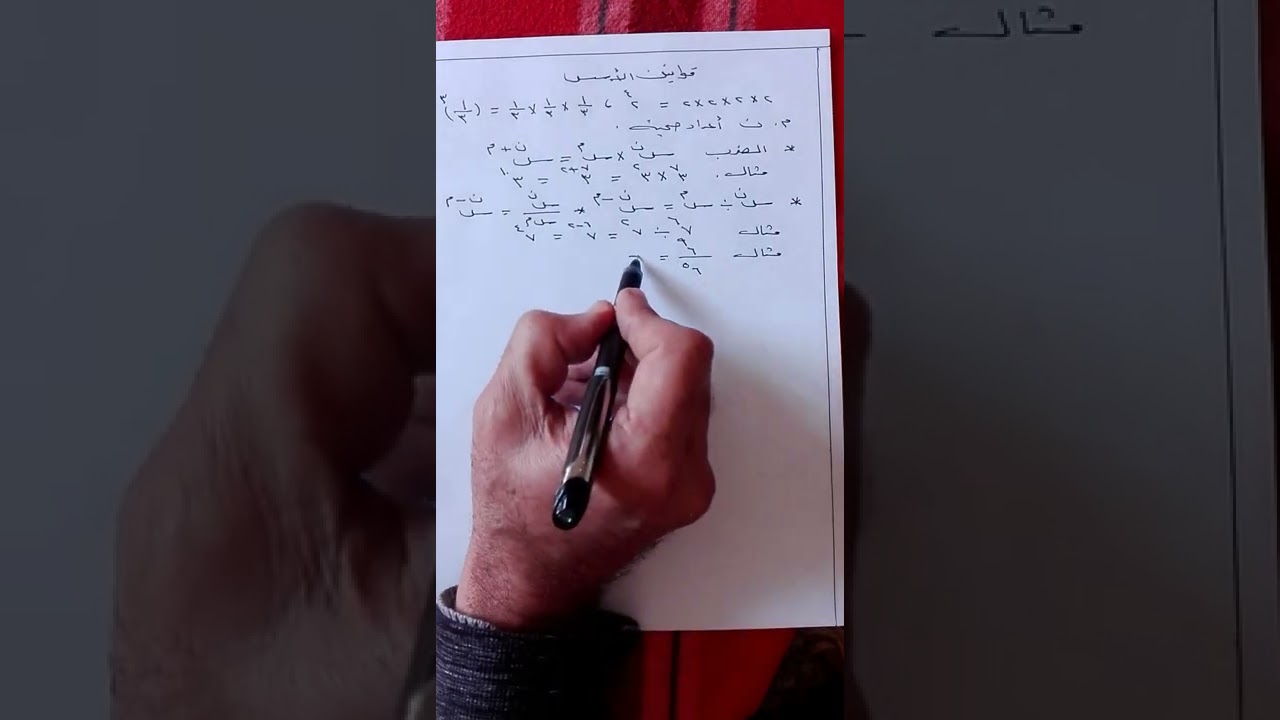 قوانين الأسس
٢×٢×٢×٢ = ٢^٤ ، ١/٣ × ١/٣ × ١/٣ = (١/٣)^٣
م. ن أعداد صحيحة .
* الضرب س^ن × س^م = س^(ن+م)
مثال . ٣^٧ × ٣^٢ = ٣^(٧+٢) = ٣^١٠
* س^ن ÷ س^م = س^(ن-م) * س^ن/س^م = س^(ن-م)
مثال ٧^٦ ÷ ٧^٢ = ٧^(٦-٢) = ٧^٤
مثال ٦^٩/٦^٥ =
مثال